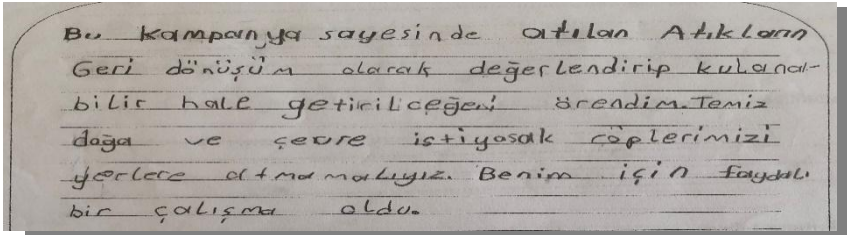 Bu kampanya sayesinde atılan Atıkların
Geri dönüşüm olarak değerlendirip kulanal-
bilir hale getiriliceğeni örendim. Temiz
dağa ve çevre istiyosak çöplerimizi
yerlere atmamalıyız. Benim için faydalı
bir çalışma oldu.